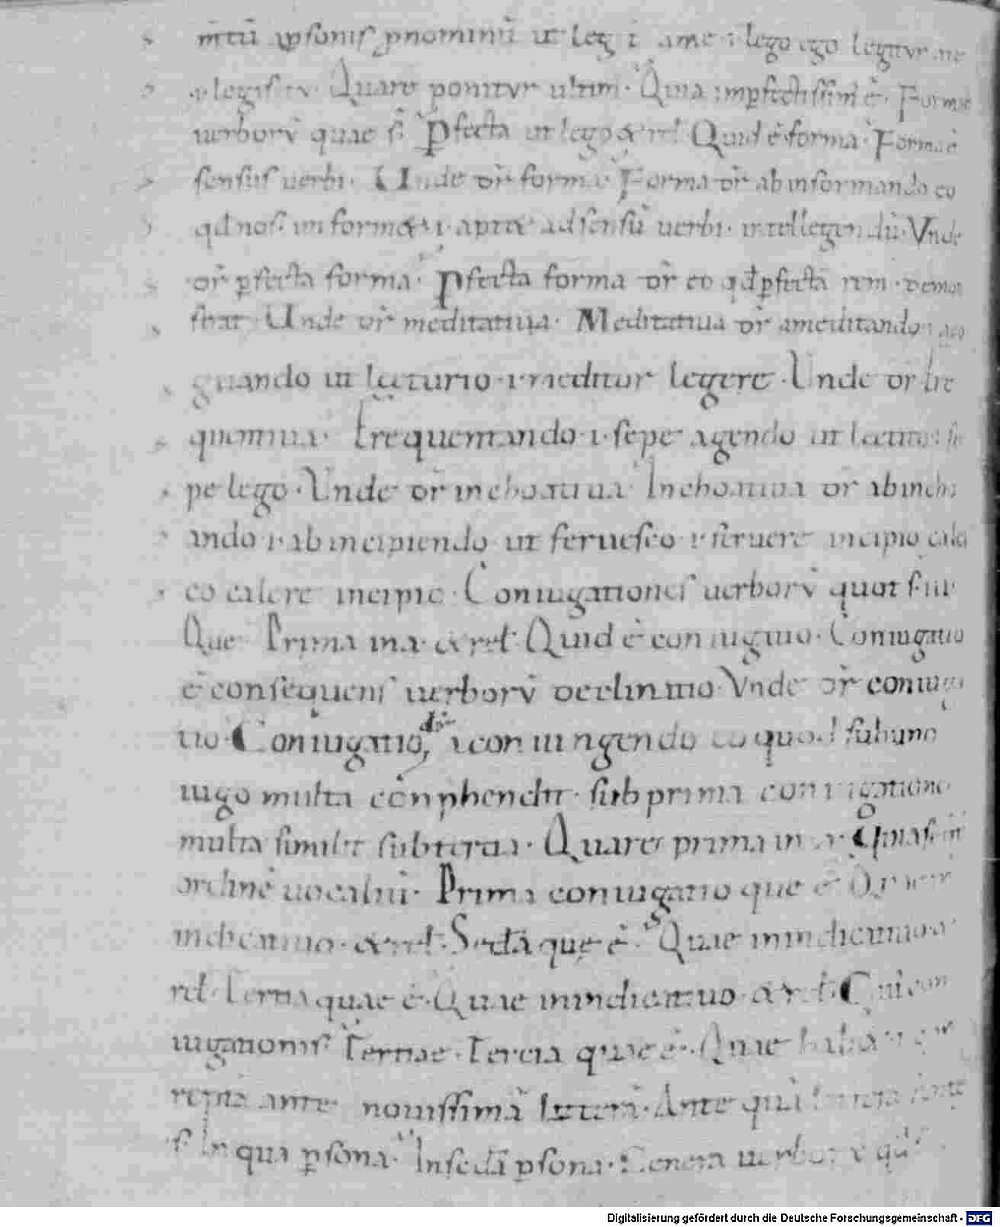 m̄tū ꝑsonis pnominū ut leg i ame i lego ego legitur
i legis tu · Quare ponitur ultim · Quia imperfectissim ē · Formae
uerborū quae s̄ · Pfecta ut lego & rel Quid ē forma · Forma ē
sensus uerbi · Unde dr̄ forma · Forma dr̄ ab informando eo
qd nos informat · i · aptat ad sensū uerbi · intellegendū · Unde
dr̄ ꝑfecta forma · Pfecta forma dr̄ eo qd ꝑfectā rem demon
strat · Unde dr̄ meditatiua · Meditatiua dr̄ ameditando
ut lecturio · i meditor legere · Unde dr̄ fre
quentatiua · Frequentando · i sepe agendo ut lectito · se
pe lego · Unde dr̄ inchoatiua · Inchoatiua dr̄ ab incho
ando i ab incipiendo ut feruesco · i feruere incipio cales
co calere incipio · Coniugationes uerborū quot sunt
Que Prima in a · & rel Quid ē coniugatio · Coniugatio
ē consequens uerborū declinatio · Unde dr̄ coniuga
tio · Coniugatio dr̄ a coniungendo eo quod sub uno
iugo multa conphendit · sub prima coniugatione
multa similit sub tertia · Quare prima in a · Quia
ordinē uocaliū · Prima coniugatio que ē Quae in
indicatiuo · & rel · Scda que ē · Quae in indicatiuo
rel · Tertia quae ē · Quae in indicatiuo & rel · Cui con
iugationis Tertiae · Tercia quae ē · Quae
ante nouissimā litterā · Ante quā
In qua ꝑsona · In scda ꝑsona · Genera uerborū
Digitalisierung gefördert durch die Deutsche Forschungsgemeinschaft - DFG